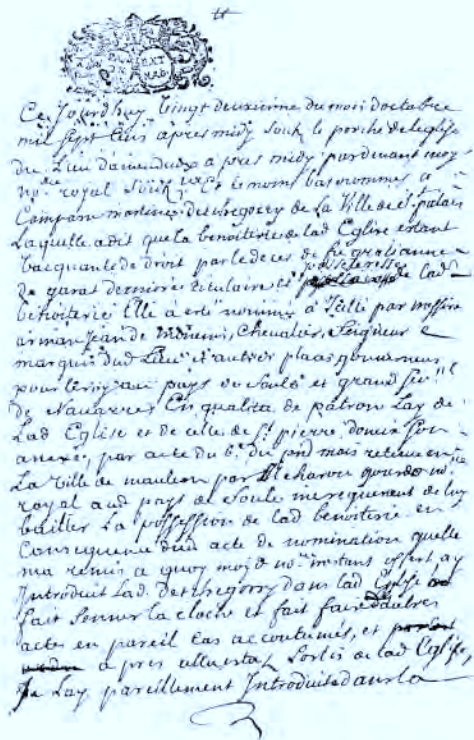 EXT
NAD
Ce Jourdhuy vingt deuxieme du mois doctobre
mil sept Cens apres midy soubs le porche de leglise
du Lieu apres midy pardevant moy
no.re royal soubs et tesmoins bas nommes a
Comparu detchegorry de La Ville de St palais
Laquelle a dit que la benoiterie de lad Eglise estant
vacquante de droit par le deces de feu gratianne
de garat derniere titulaire et possesseresse de lad
benoiterie Elle a esté nommée a Icelle par messire
arman Jean de moneins, Chevalier, Seigneur et
marquis dud Lieu et autres places gouverneur
pour le roy au pays de Soule et grand
de Navarre En qualité de patron Lay de
Lad Eglise et de celle de St pierre son
anexe, par acte du 6e du pnt mois retenu en
La Ville de mauleon par no.re
royal aud pays de Soule me requerant de luy
bailler La possession de lad benoiterie en
Consequence dud acte de nomination quelle
ma remis a quoy moyd no.re instant offert ay
Introduit Lad. detchegorry dans lad Eglise
fait sonner la cloche et fait faire dautres
actes en pareil Cas accoutumés, et
apres elle estant sortie de lad Eglise,
Je Lay pareillement Introduite dans la